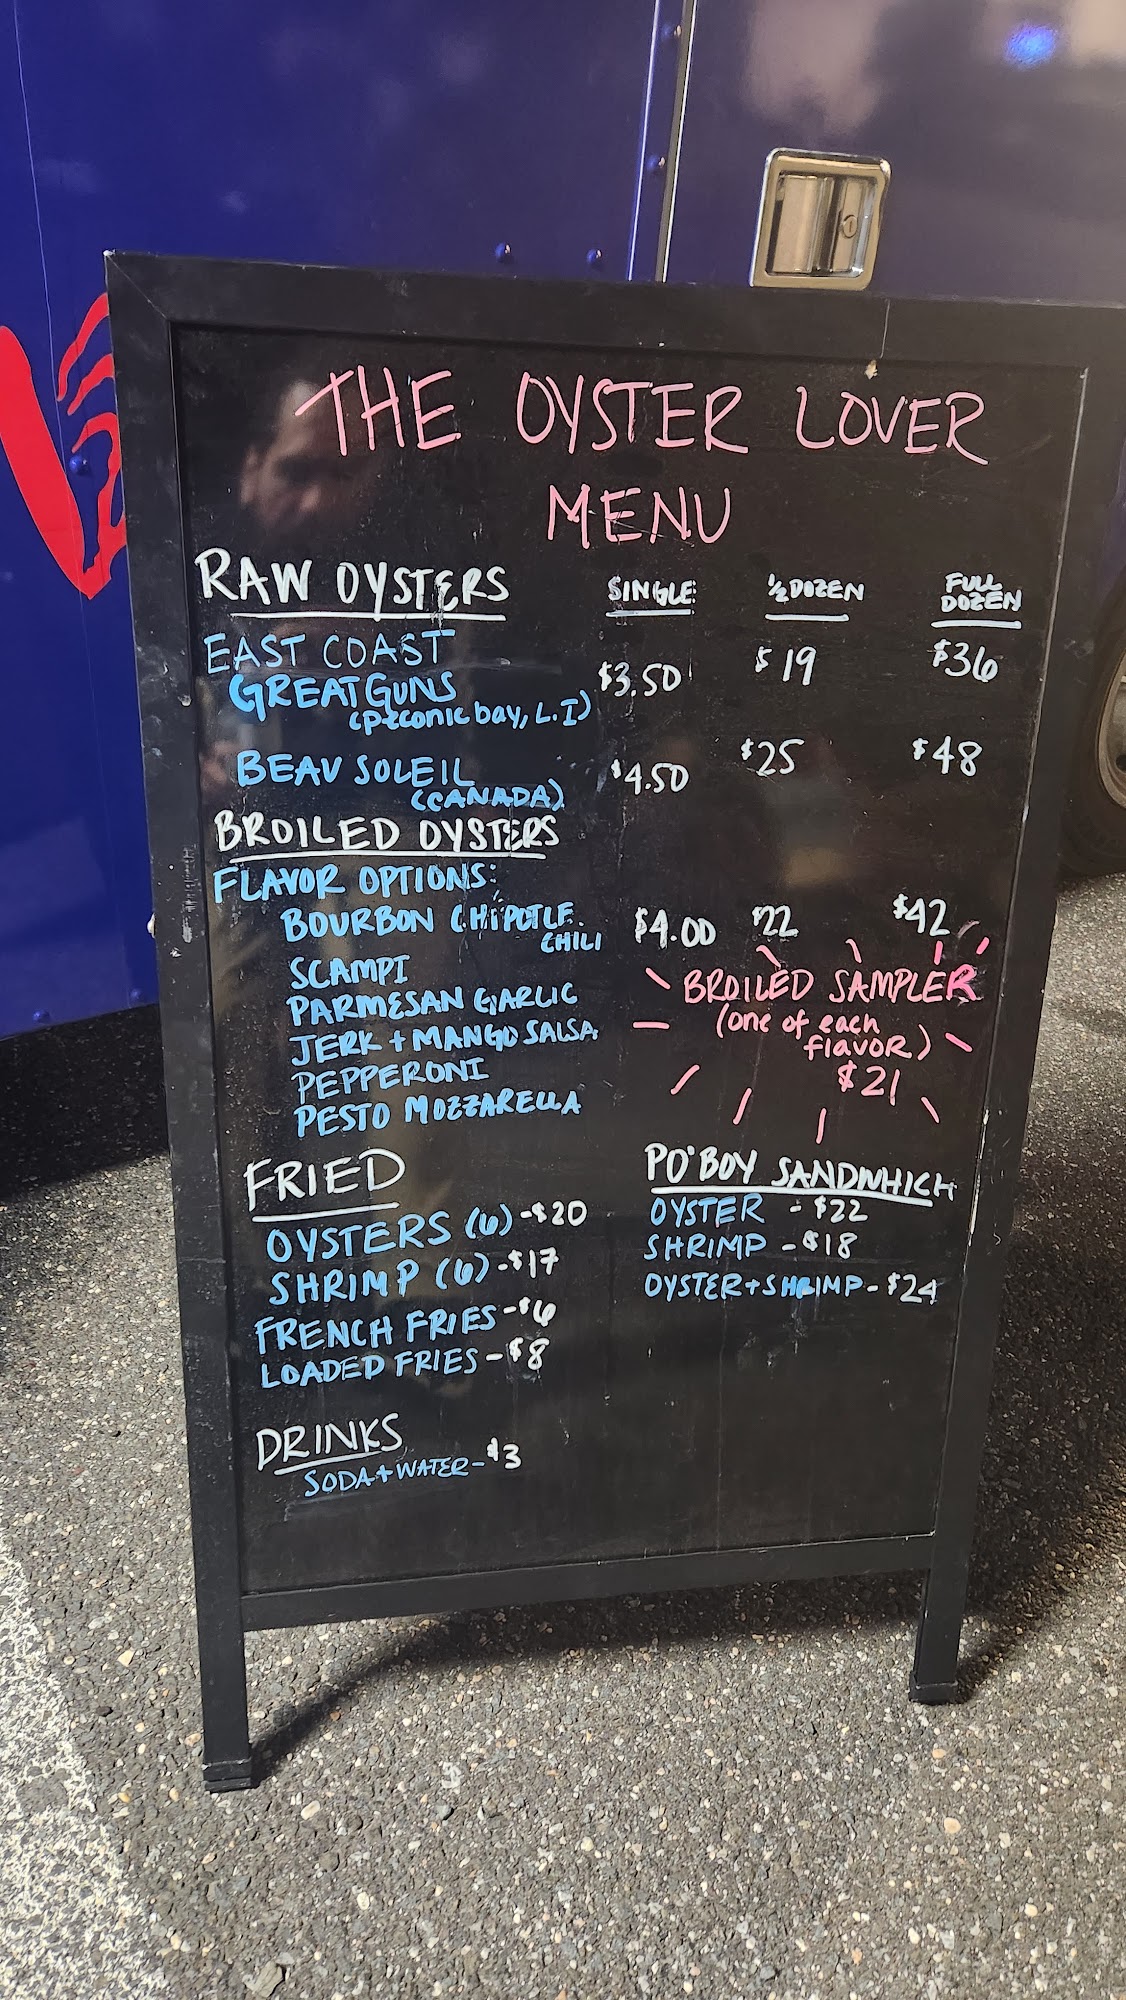 THE OYSTER LOVER
MENU
RAW OYSTERS SINGLE ½ DOZEN FULL DOZEN
EAST COAST
GREAT GUNS $3.50 $19 $36
(Peconic bay, L.I)
BEAU SOLEIL $4.50 $25 $48
(CANADA)
BROILED OYSTERS
FLAVOR OPTIONS:
BOURBON CHIPOTLE $4.00 $22 $42
CHILI
SCAMPI
PARMESAN GARLIC
JERK + MANGO SALSA
PEPPERONI
PESTO MOZZARELLA
BROILED SAMPLER
(one of each
flavor)
$21
FRIED
OYSTERS (6) -$20
SHRIMP (6) -$17
FRENCH FRIES -$6
LOADED FRIES - $8
PO'BOY SANDWHICH
OYSTER - $22
SHRIMP - $18
OYSTER+SHRIMP - $24
DRINKS
SODA + WATER - $3